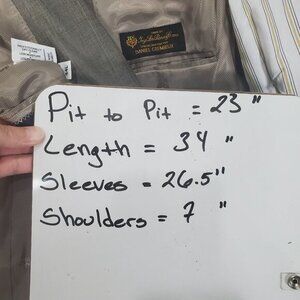 DANIEL CREMIEUX
Pit to Pit = 23"
Length = 34"
Sleeves = 26.5"
Shoulders = 7"